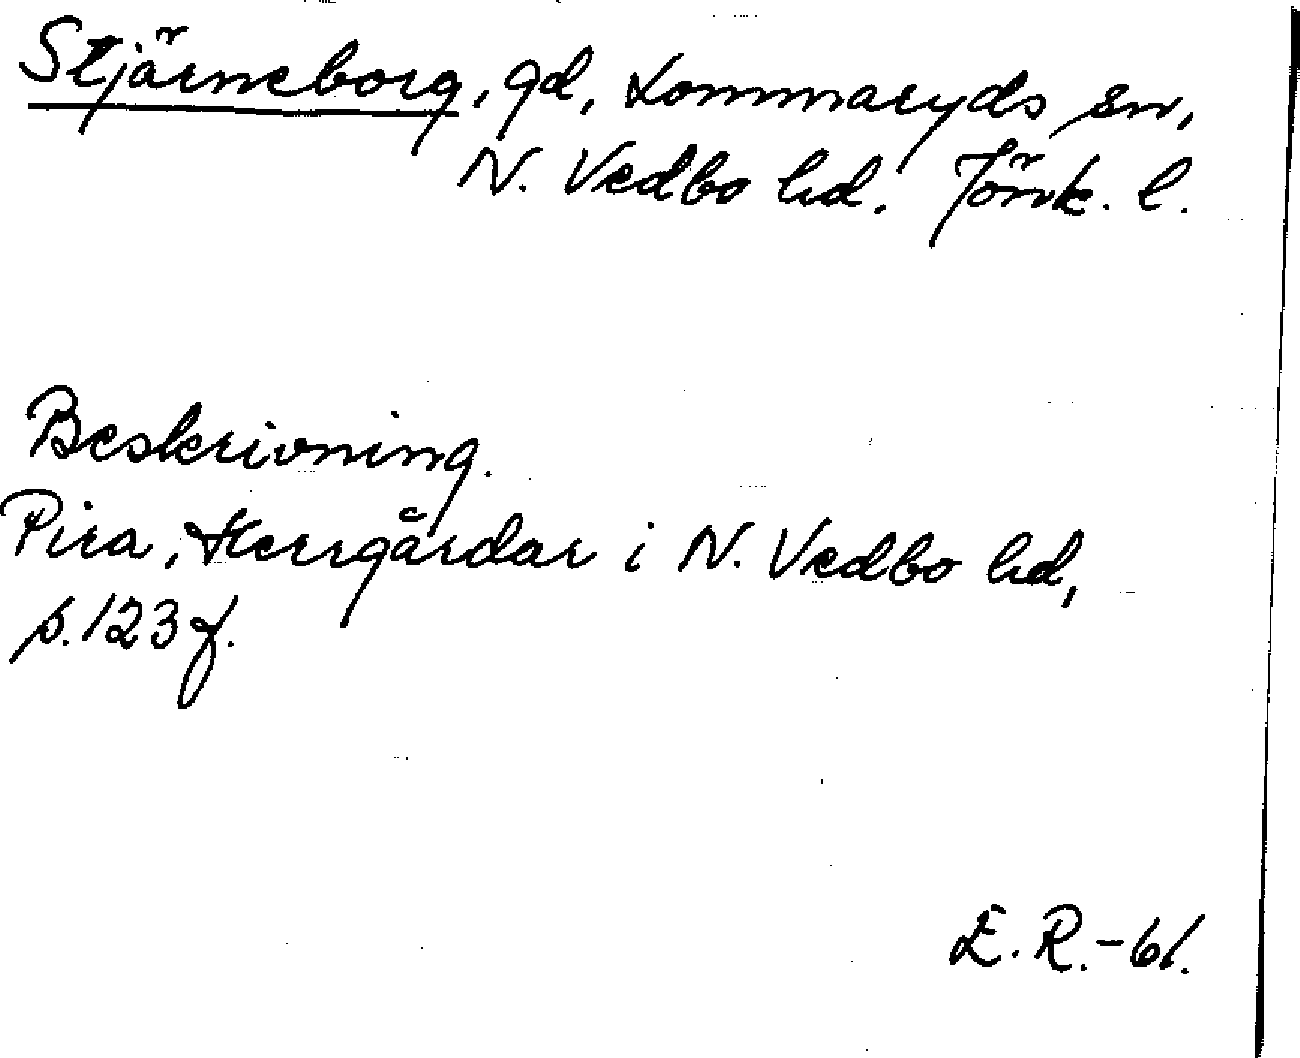 Stjärneborg, gd, Lommaryds sn,
N. Vedbo hd. Jönk. l.
Beskrivning.
Pira, Herrgårdar i N. Vedbo hd,
s. 123 f.
E. R. -61.